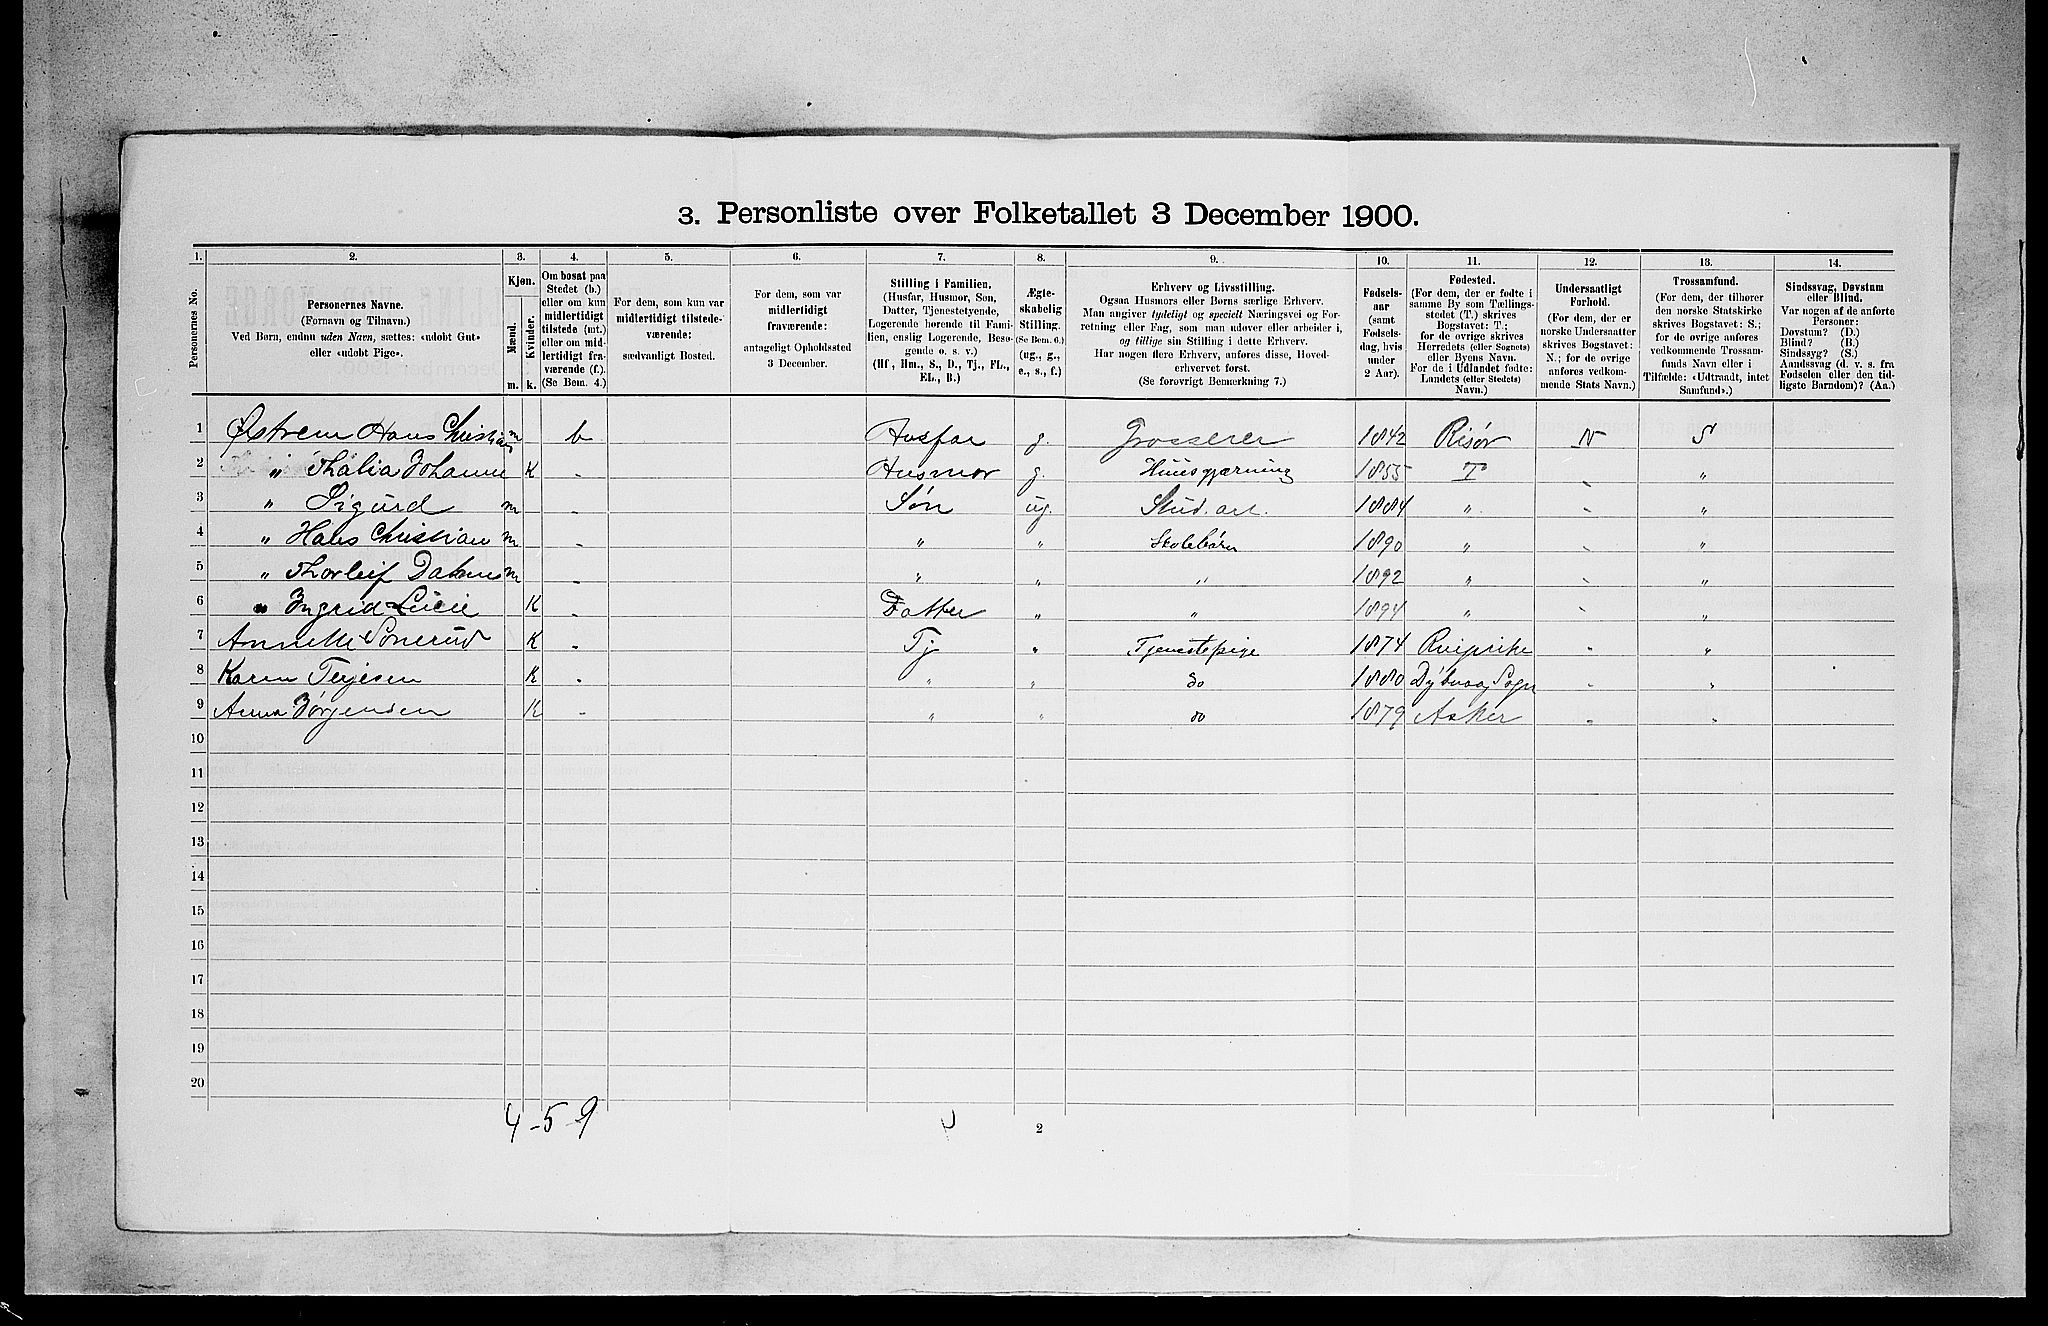 3. Personliste over Folketallet 3 December 1900.
1. 2. 3. 4. 5. 6. 7. 8. 9. 10. 11. 12. 13. 14.
Personernes No.
Personernes Navne.
(Fornavn og Tilnavn.)
Ved Børn, endnu uden Navn, sættes: «udøbt Gut»
eller «udøbt Pige».
Kjøn.
Mænd. Kvinder.
m. k.
Om bosat paa
Stedet (b.)
eller om kun
midlertidigt
tilstede (mt.)
eller om mid-
lertidigt fra-
værende (f.).
(Se Bem. 4.)
For dem, som kun var
midlertidigt tilstede-
værende:
sædvanligt Bosted.
For dem, som var
midlertidigt
fraværende:
antageligt Opholdssted
3 December.
Stilling i Familien.
(Husfar, Husmor, Søn,
Datter, Tjenestetyende,
Logerende hørende til Fami-
lien, enslig Logerende, Besø-
gende o. s. v.)
(Hf., Hm., S., D., Tj., FL.,
EL., B.)
Ægte-
skabelig
Stilling.
(Se Bem. 6.)
(ug., g.,
e., s., f.)
Erhverv og Livsstilling.
Ogsaa Husmors eller Børns særlige Erhverv.
Man angiver tydeligt og specielt Næringsvei og For-
retning eller Fag, som man udøver eller arbeider i,
og tillige sin Stilling i dette Erhverv.
Har nogen flere Erhverv, anføres disse, Hoved-
erhvervet først.
(Se forøvrigt Bemerkning 7.)
Fødsels-
aar
(samt
Fødsels-
dag, hvis
under
2 Aar).
Fødested.
(For dem, der er fødte i
samme By som Tællings-
stedet (T.) skrives
Bogstavet: T.;
for de øvrige skrives
Herredets (eller Sognets)
eller Byens Navn.
For de i Udlandet fødte:
Landets (eller Stedets)
Navn.)
Undersaatligt
Forhold.
(For dem, der er
norske Undersaatter
skrives Bogstavet:
N.; for de øvrige
anføres vedkom-
mende Stats Navn.)
Trossamfund.
(For dem, der tilhører
den norske Statskirke
skrives Bogstavet: S.;
for de øvrige anføres
vedkommende Trossam-
funds Navn eller i
Tilfælde: «Udtraadt, intet
Samfund».)
Sindssvag, Døvstum
eller Blind.
Var nogen af de anførte
Personer:
Døvstum? (D.)
Blind? (B.)
Sindssyg? (S.)
Aandssvag (d. v. s. fra
Fødselen eller den tid-
ligste Barndom)? (Aa.)
1 Østrem Hans Christian m b Husfar g. Grosserer 1842 Risør N S
2 " Thalia Johanne K - Husmor g. Huusgjærning 1855 T - "
3 " Sigurd m - Søn ug. Stud. art. 1884 " - "
4 " Hans Christian m - " " Skolebørn 1890 " - "
5 " Thorleif m - " " " 1892 " - "
6 " Ingrid Lucie K - Datter " " 1894 " - "
7 K - Tj " Tjenestepige 1874 - "
8 Karen Terjesen K - " " do 1880 Dybvaag Sogn - "
9 Anna Jørgensen K - " " do 1879 Asker - "
10
11
12
13
14
15
16
17
18
19
20
4 - 5 9
2